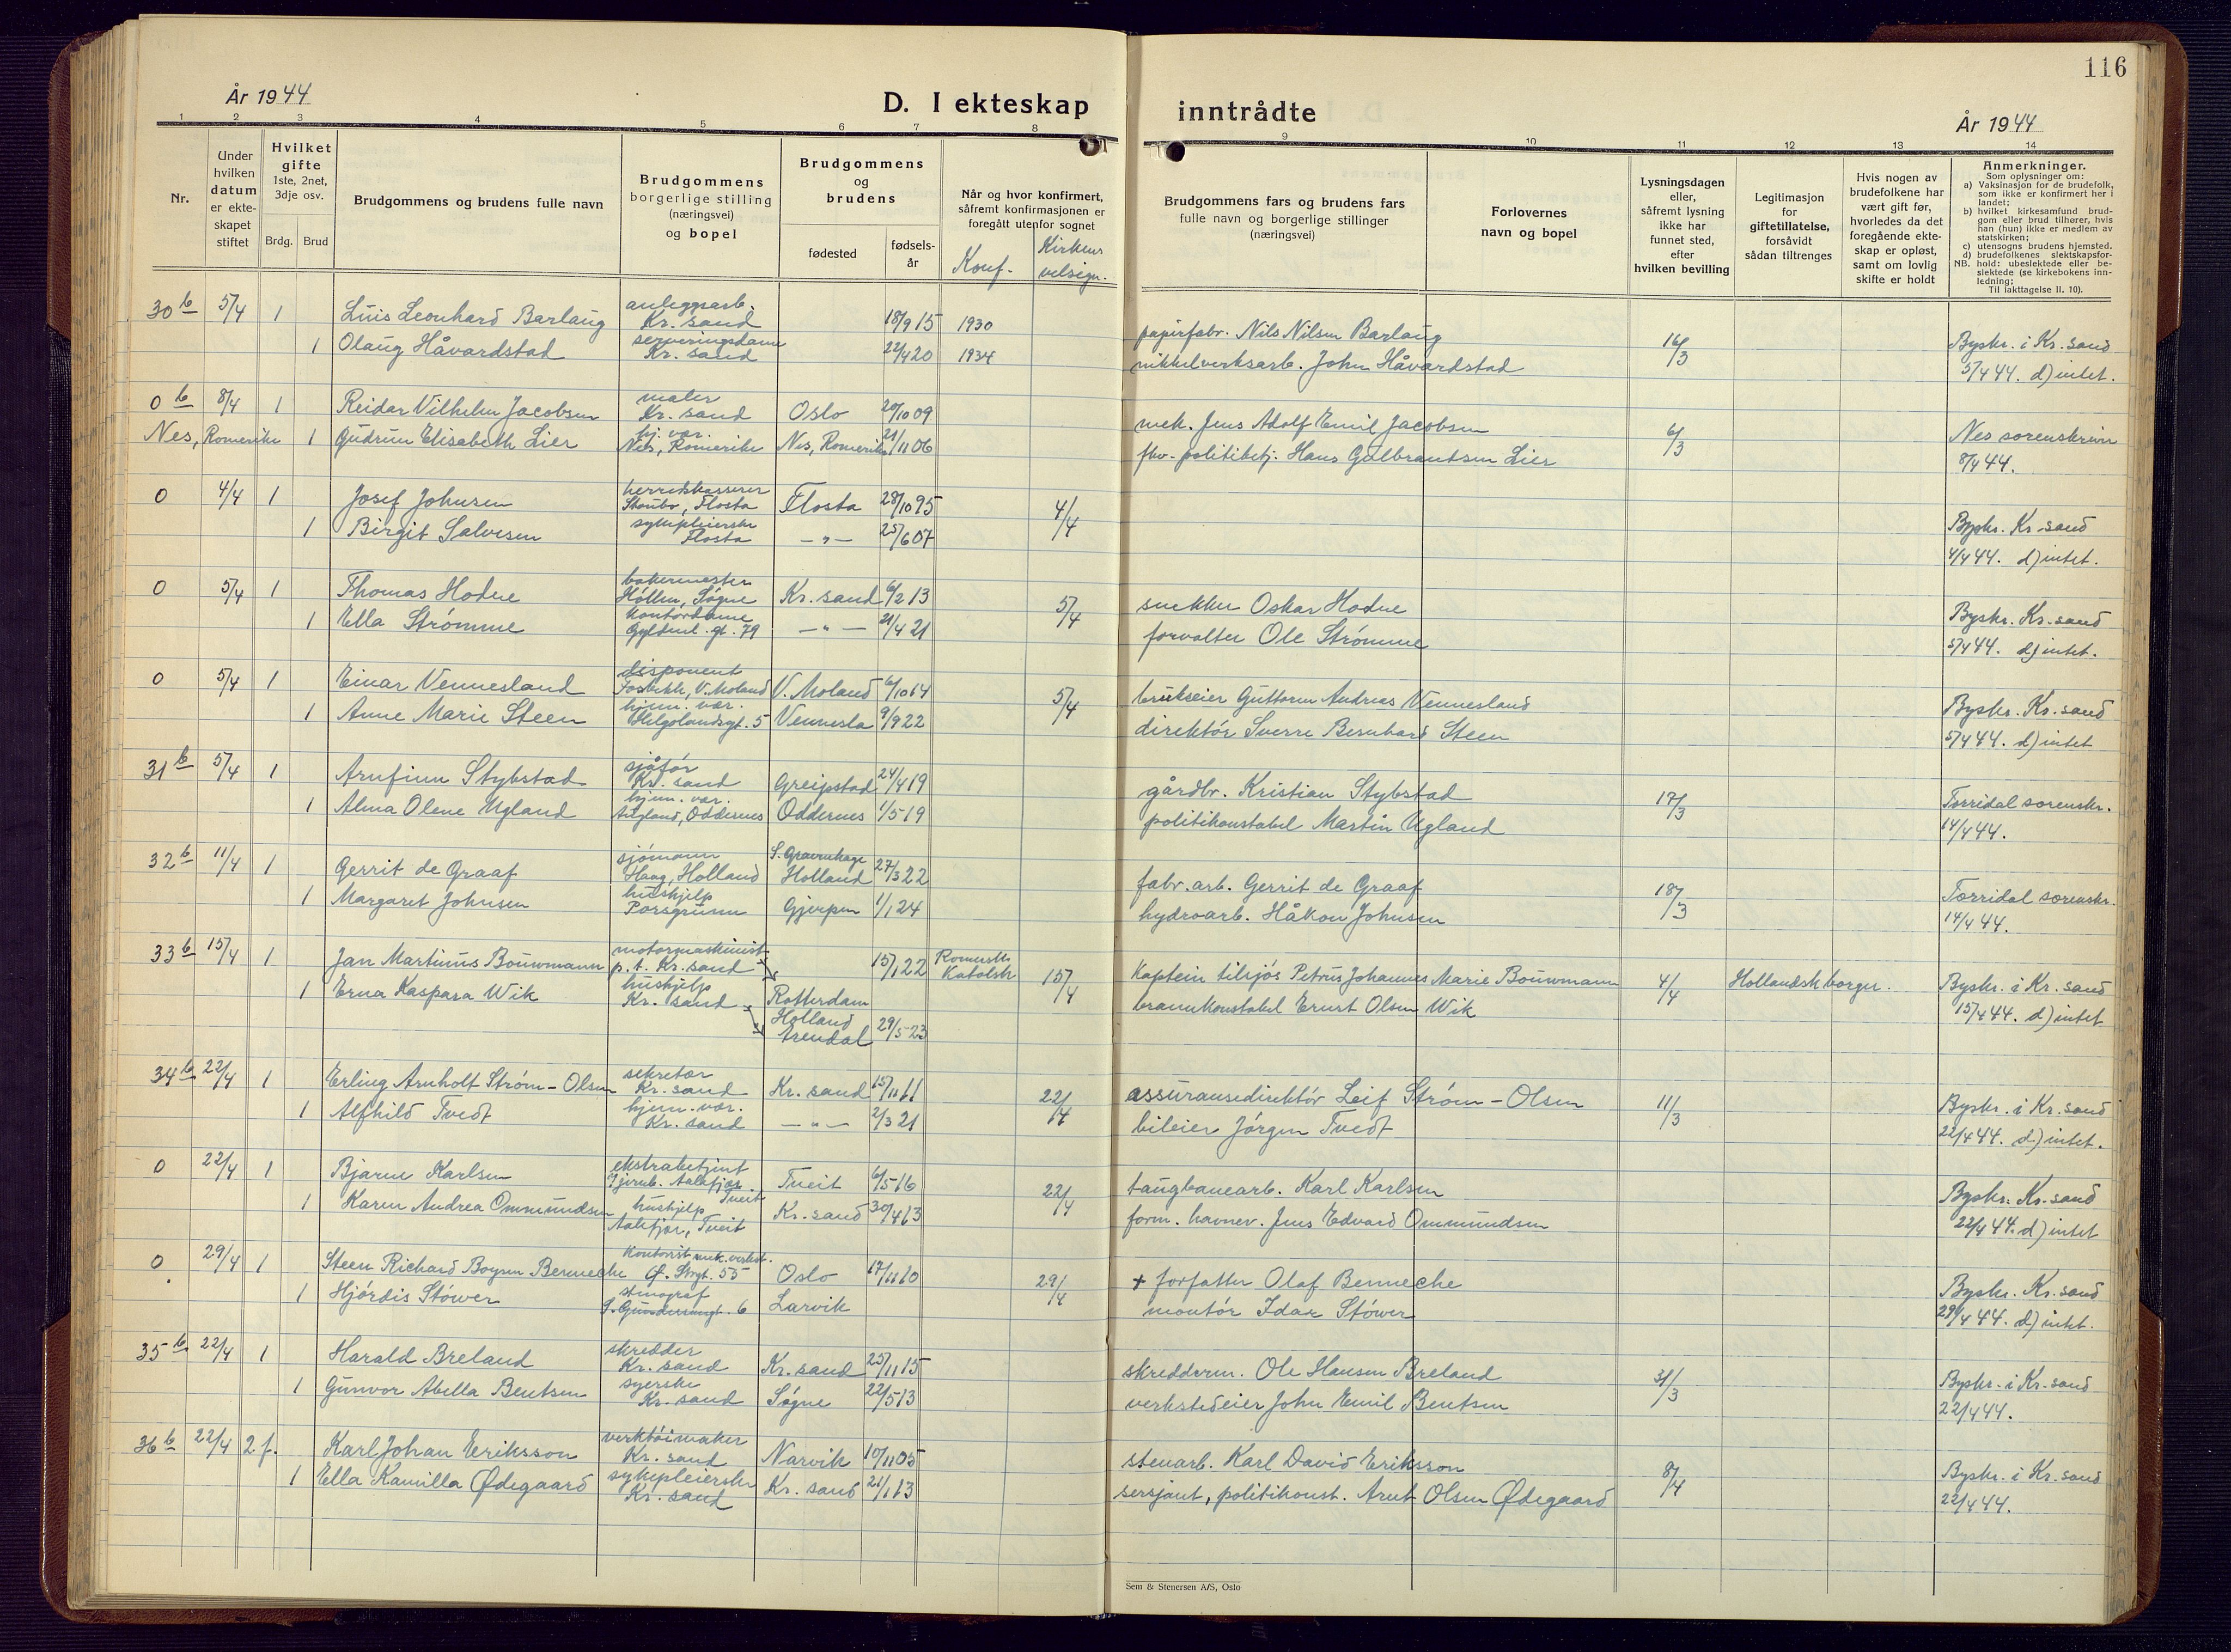 116
År 1944
D. I ekteskap inntrådte
År 1944
1 2 3 4 5 6 7 8 9 10 11 12 13 14
Nr.
Under hvilken datum er ekteskapet stiftet
Hvilket gifte 1ste, 2net, 3dje osv.
Brdg. Brud
Brudgommens og brudens fulle navn
Brudgommens borgerlige stilling (næringsvei) og bopel
Brudgommens og brudens
fødested
fødselsår
Når og hvor konfirmert, såfremt konfirmasjonen er foregått utenfor sognet
Konf. Kirkens velsign.
Brudgommens fars og brudens fars fulle navn og borgerlige stillinger (næringsvei)
Forlovernes navn og bopel
Lysningsdagen eller, såfremt lysning ikke har funnet sted, efter hvilken bevilling
Legitimasjon for giftetillatelse, forsåvidt sådan tiltrenges
Hvis nogen av brudefolkene har vært gift før, hvorledes da det foregående ekteskap er opløst, samt om lovlig skifte er holdt
Anmerkninger.
Som oplysninger om:
a) Vaksinasjon for de brudefolk, som ikke er konfirmert her i landet;
b) hvilket kirkesamfund brudgom eller brud tilhører, hvis han (hun) ikke er medlem av statskirken;
c) utensogns brudens hjemsted.
d) brudefolkenes slektskapsforhold: ubeslektede eller beslektede (se kirkebokens innledning;
NB.
Til iakttagelse II. 10).
30 b 5/4 1 Luis Leonhard Barlaug anleggsarb. Kr. sand 18/9 15 1930 papirfabr. Nils Nilsen Barlaug 16/3 Byskr. i Kr. sand
1 Olaug Håvardstad serveringsdame Kr. sand 22/4 20 1934 nikkelverksarb. John Håvardstad 5/4 44. d) intet.
0 b 8/4 1 Reidar Vilhelm Jacobsen maler Kr. sand Oslo 20/10 09 mek. Jens Adolf Emil Jacobsen 6/3 Nes sorenskriv
Nes, Romerike 1 Gudrun Elisabeth Lier hj. vær. Nes, Romerike Nes, Romerike 21/11 06 fhv. politibetj. Hans Gulbrantsen Lier 8/4 44.
0 4/4 1 Josef Johnsen herredskasserer Staubø, Flosta Flosta 28/10 95 4/4 Byskr. Kr. sand
1 Birgit Salvesen sykepleierske Flosta — " — 25/6 07 4/4 44. d) intet.
0 5/4 1 Thomas Hodne bakermester Høllen, Søgne Kr. sand 6/2 13 5/4 snekker Oskar Hodne Byskr. Kr. sand
1 Ella Strømme kontordame Gyldenl. gt. 79 — " — 21/4 21 forvalter Ole Strømme 5/4 44. d) intet.
0 5/4 1 Einar Vennesland disponent Fosbekk, V. Moland V. Moland 6/10 14 5/4 brukseier Guttorm Andreas Vennesland Byskr. Kr. sand
1 Anne Marie Steen hjem. vær. Helgolandsgt. 5 Vennesla 9/9 22 direktør Sverre Bernhard Steen 5/4 44. d) intet
31 b 5/4 1 Arnfinn Stybstad sjåfør Kr. sand Greipstad 24/4 19 gårdbr. Kristian Stybstad 17/3 Torridal sorenskr.
1 Alma Olene Ugland hjem. vær. Augland, Oddernes Oddernes 1/5 19 politikonstabel Martin Ugland 14/4 44.
32 b 11/4 1 Gerrit de Graaf sjømann Haag, Holland S. Gravenhage Holland 27/3 22 fabr. arb. Gerrit de Graaf 18/3 Torridal sorenskr.
1 Margaret Johnsen hushjelp Porsgrunn Gjerpen 1/1 24 hydroarb. Håkon Johnsen 14/4 44.
33 b 15/4 1 Jan Martinus Bouwmann motormaskinist p. t. Kr. sand 15/1 22 Romersk Katolsk 15/4 Kaptein tilsjøs Petrus Johannes Marie Bouwmann 4/4 Hollandsk borger. Byskr. i Kr. sand
1 Erna Kaspara Wik hushjelp Kr. sand Rotterdam Holland Arendal 29/5 23 brannkonstabel Ernst Olsen Wik 15/4 44. d) intet
34 b 22/4 1 Erling Arnholt Strøm-Olsen sekretær Kr. sand Kr. sand 15/11 11 22/4 assuransedirektør Leif Strøm-Olsen 11/3 Byskr. i Kr. sand
1 Alfhild Tvedt hjem. vær. Kr. sand — " — 2/3 21 bileier Jørgen Tvedt 22/4 44. d) intet.
0 22/4 1 Bjarne Karlsen ekstrabetjent Aalefjær Tveit Tveit 6/5 16 22/4 taugbanearb. Karl Karlsen Byskr. Kr. sand
1 Karen Andrea Ommundsen hushjelp Aalefjær, Tveit Kr. sand 30/4 13 form. havnev. Jens Edvard Ommundsen 22/4 44. d) intet
0 29/4 1 Steen Richard Boysen Benneche Kontorist mek. verkst. Ø. Strgt. 55 Oslo 17/11 10 29/4 + forfatter Olaf Benneche Byskr. Kr. sand
1 Hjørdis Støwer stenograf Gundersensgt. 6 Larvik montør Idar Støwer 29/4 44. d) intet.
35 b 22/4 1 Harald Breland skredder Kr. sand Kr. sand 25/11 15 skredderm. Ole Hansen Breland 31/3 Byskr. i Kr. sand
1 Gunvor Abella Bentsen syerske Kr. sand Søgne 22/5 13 verkstedeier John Emil Bentsen 22/4 44.
36 b 22/4 2 f. Karl Johan Eriksson verktøimaker Kr. sand Narvik 10/11 05 stenarb. Karl David Eriksson 8/4 Byskr. i Kr. sand
1 Ella Kamilla Ødegaard sykepleierske Kr. sand Kr. sand 21/1 13 sersjant, politikonst. Arnt Olsen Ødegaard 22/4 44.
Sem & Stenersen A/S, Oslo